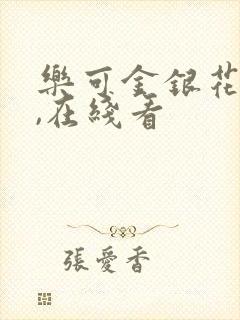 樂可金銀花
,在綫看
張愛香